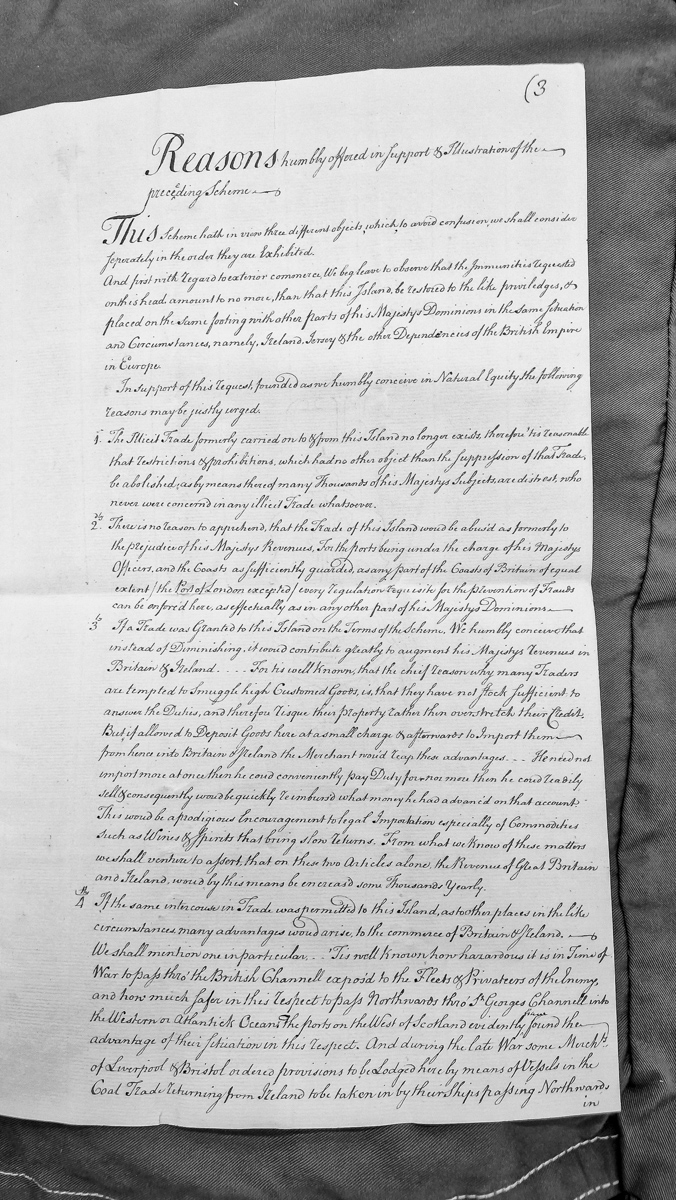 (3
Reasons humbly offered in Support & Illustration of the
preceeding Scheme
This Scheme hath in view three different objects, which, to avoid confusion, we shall consider
seperately in the order they are Exhibited.
And first with regard to exterior commerce, We beg leave to observe that the Immunities requested
on this head amount to no more, than that this Island, be restored to the like priviledges, &
placed on the same footing with other parts of his Majestys Dominions in the same Situation
and Circumstances, namely, Ireland, Jersey & the other Dependencies of the British Empire
in Europe.
In Support of this request, founded as we humbly conceive in Natural Equity the following
reasons may be justly urged.
1. The Illicit Trade formerly carried on to & from this Island no longer exists, therefore 'tis reasonable
that restrictions & prohibitions, which had no other object than the Suppression of that Trade,
be abolished; as by means thereof many Thousands of his Majestys Subjects, are distrest, who
never were concern'd in any illicit Trade whatsoever.
2.dly There is no reason to apprehend, that the Trade of this Island wou'd be abus'd as formerly to
the prejudice of his Majestys Revenues, For the ports being under the charge of his Majestys
Officers, and the Coasts as sufficiently guarded, as any part of the Coasts of Britain of equal
extent / the Port of London excepted / every regulation requisite for the prevention of Frauds
can be enforced here, as effectually as in any other part of his Majestys Dominions
3 If a Trade was Granted to this Island on the Terms of the Scheme, We humbly conceive that
instead of Diminishing, it wou'd contribute greatly to augment his Majestys Revenues in
Britain & Ireland . . . . For tis well known, that the chief reason why many Traders
are tempted to Smuggle high Customed Goods, is, that they have not Stock Sufficient to
answer the Duties, and therefore risque their property rather then overstretch their Credit.
But if allowed to Deposit Goods here at a small charge & afterwards to Import them
from hence into Britain & Ireland the Merchant wou'd reap these advantages . . . He need not
import more at once then he cou'd conveniently pay Duty for nor more then he cou'd readily
sell & consequently wou'd be quickly reimburs'd what money he had advanc'd on that account.
This wou'd be a prodigious Encouragement to legal Importation especially of Commodities
such as Wines & Spirits that bring slow returns. From what we know of these matters
we shall venture to assert, that on these two Articles alone, the Revenue of Great Britain
and Ireland, wou'd by this means be encreas'd some Thousands Yearly.
4 If the same intercouse in Trade was permitted to this Island, as to other places in the like
circumstances, many advantages wou'd arise, to the commerce of Britain & Ireland.
We shall mention one in particular. . . 'Tis well known how hazardous it is in Time of
War to pass thro' the British Channell expos'd to the Fleets & Privateers of the Enemy,
and how much safer in this respect to pass Northwards thro' St. Georges Channell into
the Western or Atlantick Ocean. The ports on the West of Scotland evidently found the
advantage of their Situation in this respect. And during the late War some Merchts.
of Liverpool & Bristol ordered provisions to be Lodged here by means of Vessels in the
Coal Trade returning from Ireland to be taken in by their Ships passing Northwards
in